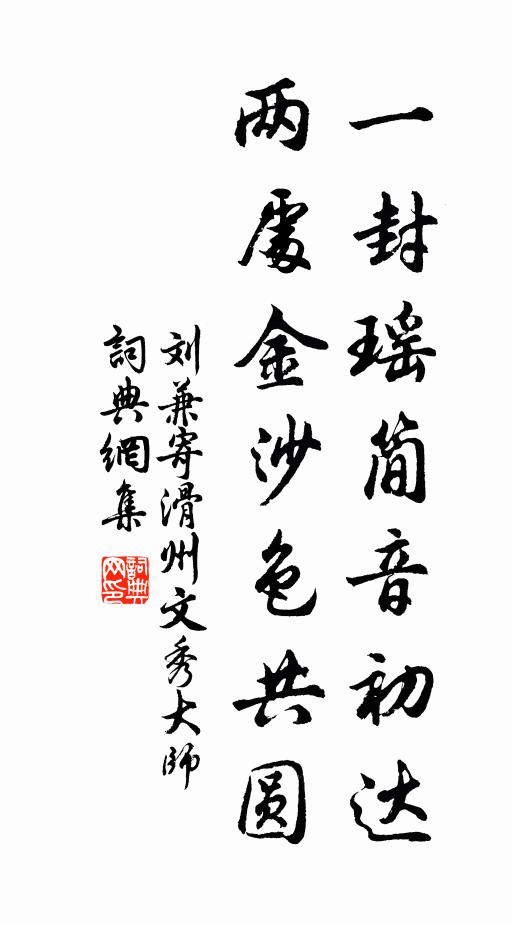 一封瑶简音初达
两处金沙色共圆
刘兼寄滑州文秀大師
詞典網集
詞典网印